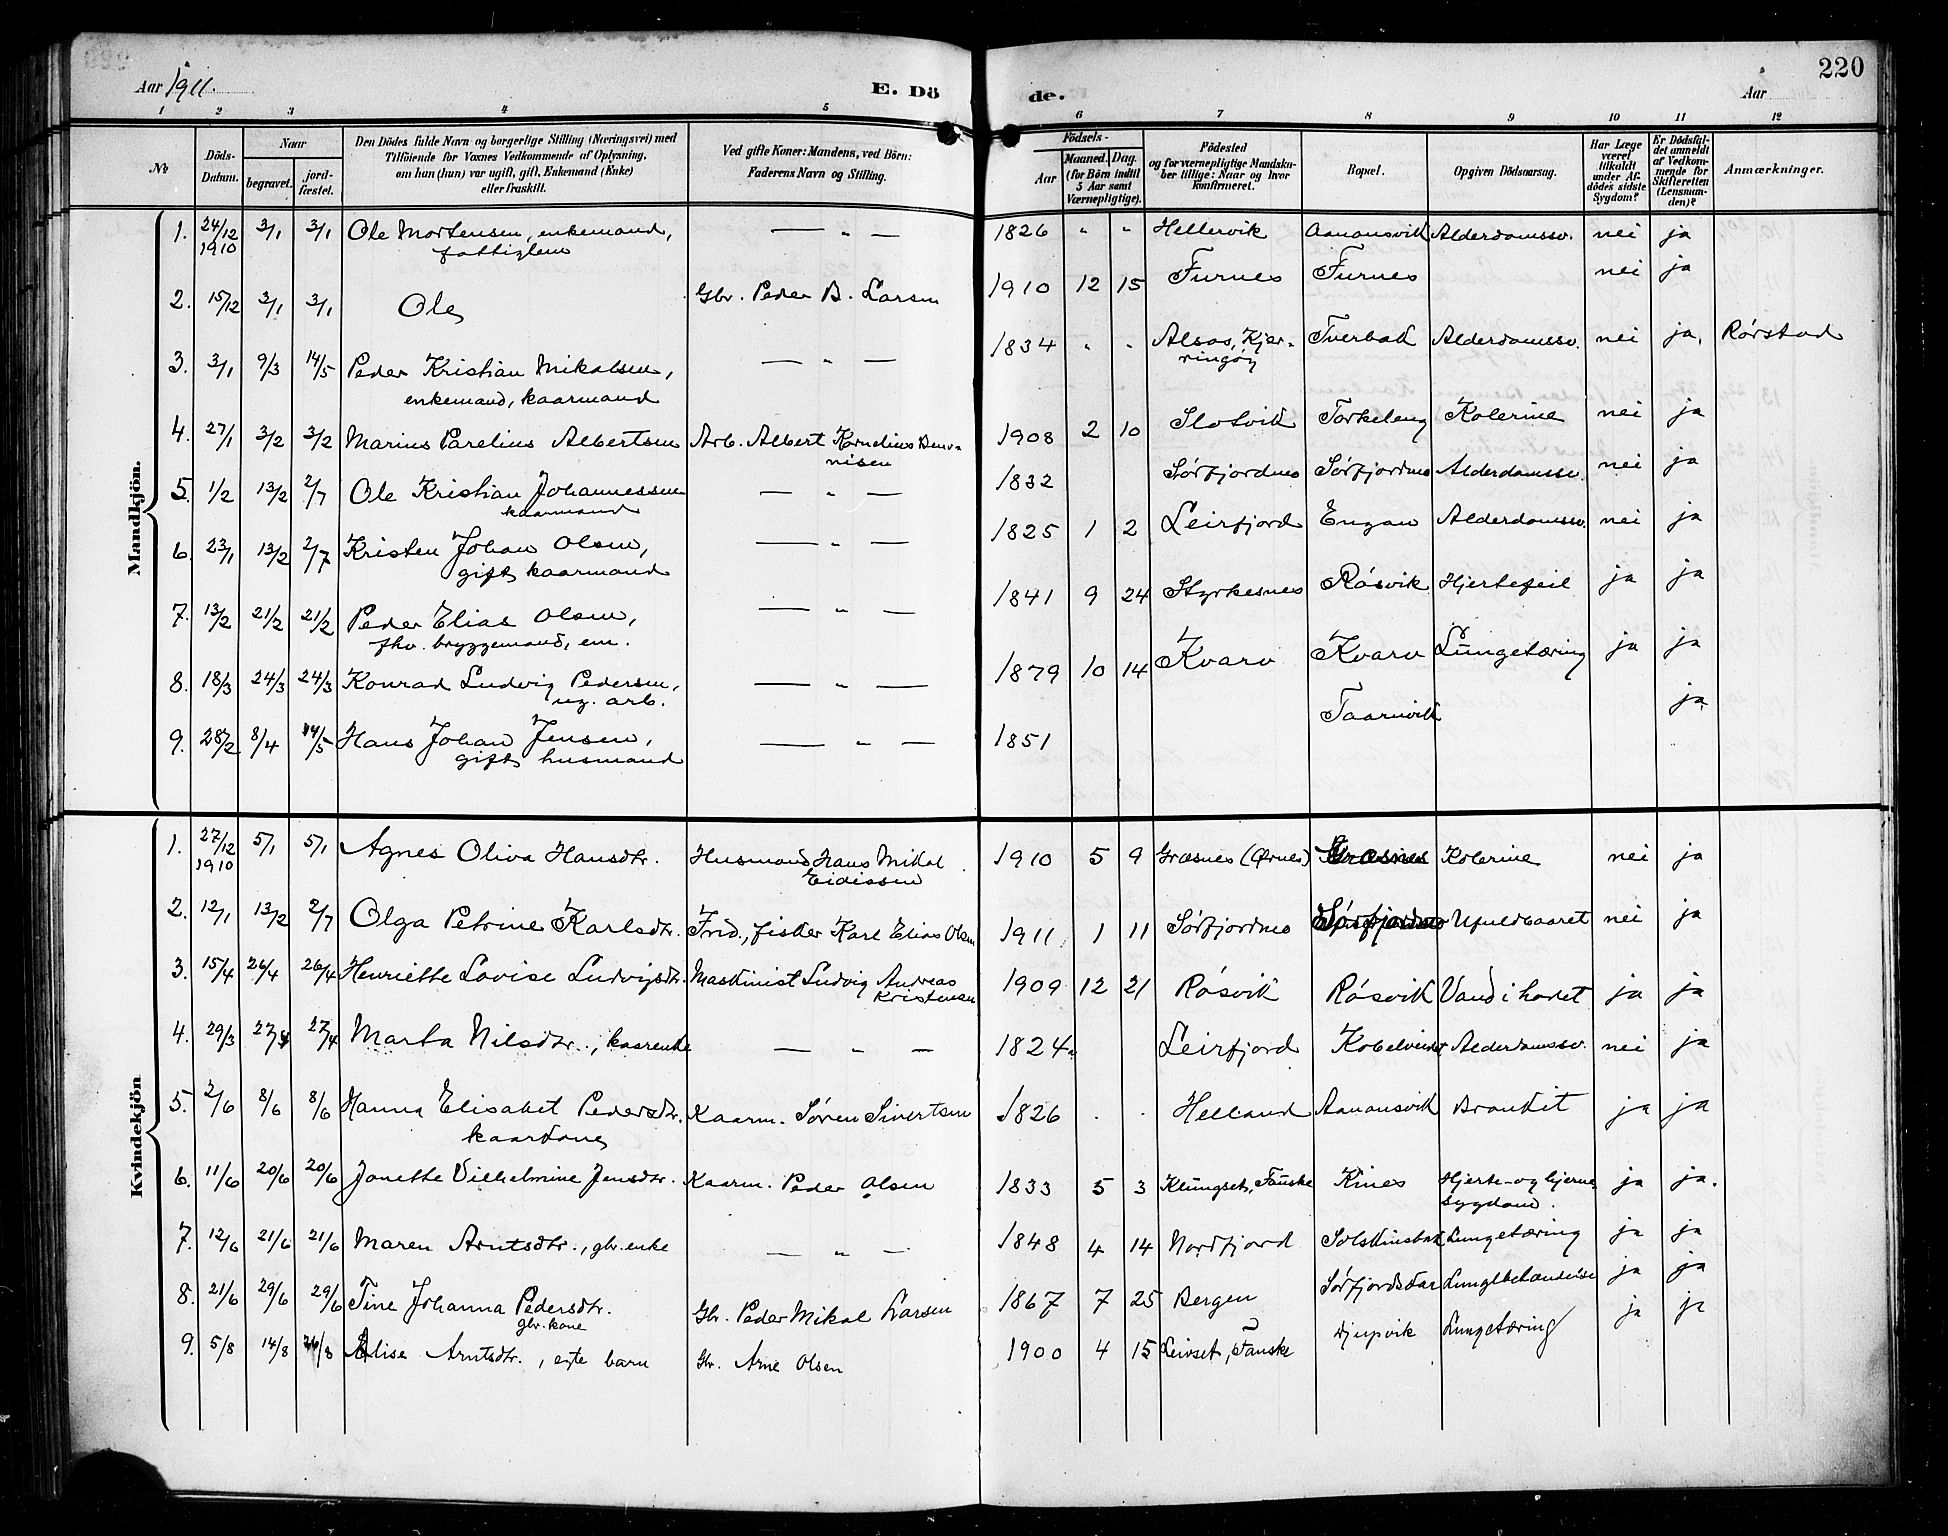 220
Aar 1911.
E. Dö
de.
Aar
1 2 3 4 5 6 7 8 9 10 11 12
No
Döds-Datum.
Naar
begravet.
jord-fæstet.
Den Dödes fulde Navn og borgerlige Stilling (Næringsvei) med
Tilföiende for Voxnes Vedkommende af Oplysning,
om han (hun) var ugift, gift, Enkemand (Enke)
eller fraskilt.
Ved gifte Koner: Mandens, ved Börn:
Faderens Navn og Stilling.
Födsels-
Aar
Maaned. Dag.
(for Börn indtil
5 Aar samt
Værnepligtige).
Födested
og for værnepligtige Mandska-
ber tillige: Naar og hvor
konfirmeret.
Bopæl.
Opgiven Dödsaarsag.
Har Læge
været
tilkaldt
under Af-
dödes sidste
Sygdom?
Er Dödsfal-
det anmeldt
af Vedkom-
mende for
Skifteretten
(Lensman-
den)?
Anmærkninger.
Mandkjön.
1. 24/12 1910 3/1 3/1 Ole Mortensen, enkemand, fattiglem — " — 1826 " " Hellervik Aanansvik Alderdomssv. nei ja
2. 15/12 3/1 3/1 Ole Gbr. Peder B. Larsen 1910 12 15 Furnes Furnes nei ja
3. 3/1 9/3 14/5 Peder Kristian Mikalsen, enkemand, kaarmand — " — 1834 " " Alsos, Kjerringøy Tverbak Alderdomssv. nei ja. Rørstad
4. 27/1 3/2 3/2 Marius Parelius Albertsen Arb. Albert Kornelius Benonisen 1908 2 10 Slotvik Torkeleng Kolerine nei ja
5. 1/2 13/2 2/7 Ole Kristian Johannessen kaarmand — " — 1832 Sørfjordnes Sørfjordnes Alderdomssv. nei ja
6. 23/1 13/2 2/7 Kristen Johan Olsen, gift kaarmand — " — 1825 1 2 Leirfjord Engan Alderdomssv. nei ja
7. 13/2 21/2 21/2 Peder Elias Olsen, fhv. bryggemand, em. — " — 1841 9 24 Styrkesnes Røsvik Hjertefeil ja ja
8. 18/3 24/3 24/3 Konrad Ludvig Pedersen, ug. arb. — " — 1879 10 14 Kvarv Kvarv Lungetæring ja ja
9. 28/2 8/4 14/5 Hans Johan Jensen, gift husmand — " — 1851 Taarnvik ja
Kvindekjön
1. 27/12 1910 5/1 5/1 Agnes Oliva Hansdtr. Husmand Hans Mikal Eidissen 1910 5 9 Græsnes (Ørnes) Græsnes Kolerine nei ja
2. 12/1 13/2 2/7 Olga Petrine Karlsdtr. Ind., fisker Karl Elias Olsen 1911 1 11 Sørfjordnes Sørfjordnes Ufuldbaaret nei ja
3. 15/4 26/4 26/4 Henriette Lovise Ludvigsdtr. Maskinist Ludvig Andreas Kristensen 1909 12 21 Røsvik Røsvik Vand i hodet ja ja
4. 29/3 27/4 27/4 Marta Nilsdtr., kaarenke — " — 1824 Leirfjord Kobelveidet Alderdomssv. nei ja
5. 2/6 8/6 8/6 Hanna Elisabet Pedersdtr. kaarkone Kaarm. Søren Sivertsen 1826 . . Helland Aanansvik Bronkit ja ja
6. 11/6 20/6 20/6 Jonette Vilhelmine Jensdtr. Kaarm. Peder Olsen 1833 5 3 Klungset, Fauske Kines Hjerte- og hjernesygdom. ja ja.
7. 12/6 21/6 21/6 Maren Arntsdtr., gbr. enke — " — 1848 4 14 Nordfjord Solskinsbak Lungetæring ja ja
8. 21/6 29/6 29/6 Tine Johanna Pedersdtr. gbr. kone Gbr. Peder Mikal Larsen 1867 7 25 Bergen Sørfjordsdar Lungebetændelse ja ja
9. 5/8 14/8 Elise Arntsdtr., egte barn Gbr. Arne Olsen 1900 4 15 Leivset, Fauske Djupvik Lungetæring ja ja